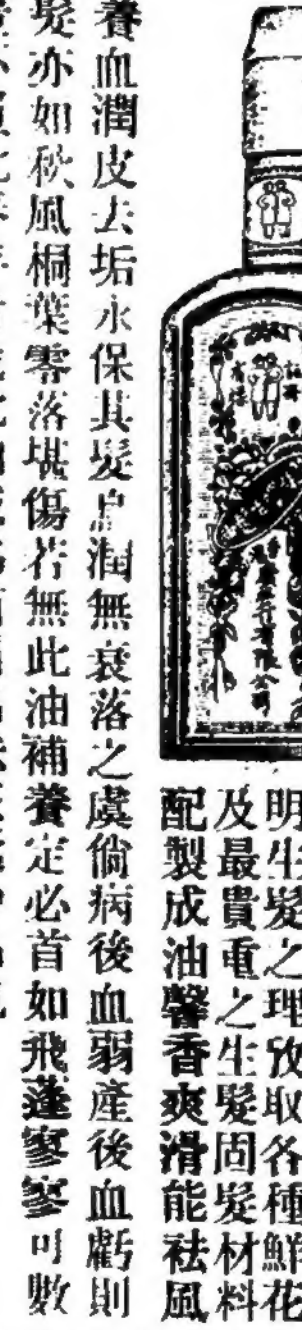 明生髮之理攷取各種鮮花
及最貴重之生髮固髮材料
配製成油馨香爽滑能袪風
養血潤皮去垢永保其髮烏潤無衰落之虞倘病後血弱產後血虧則
髮亦如秋風桐葉零落堪傷若無此油補養定必首如飛蓬寥寥可數
有限公司